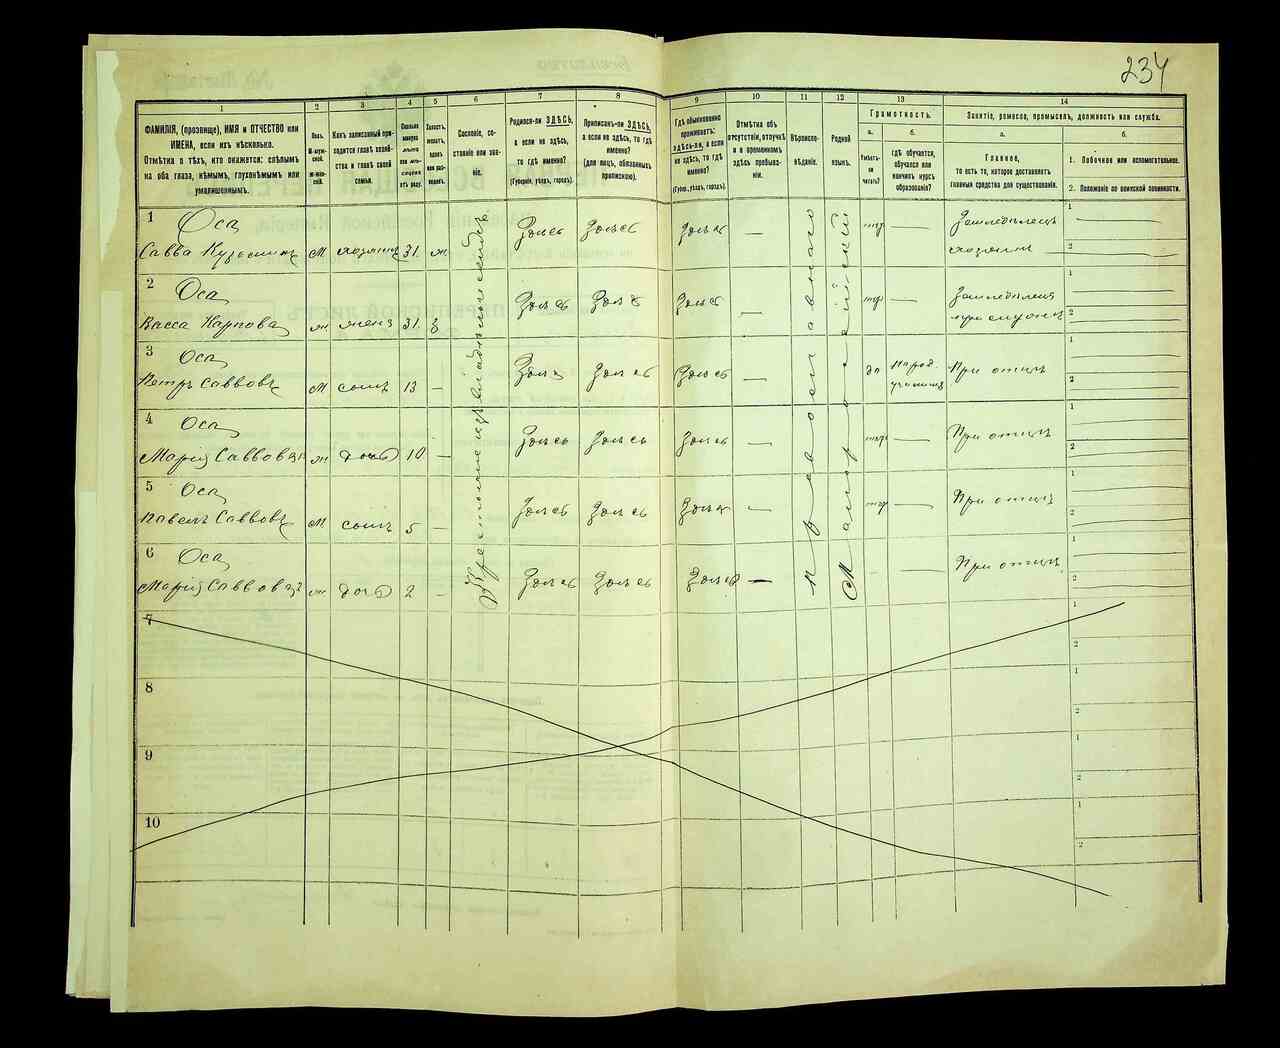 234
1
2
3
4
5
6
7
8
9
10
11
12
13
14
ФАМИЛІЯ, (прозвище), ИМЯ и ОТЧЕСТВО или
ИМЕНА, если ихъ нѣсколько.
Отмѣтка о тѣхъ, кто окажется: слѣпымъ
на оба глаза, нѣмымъ, глухонѣмымъ или
умалишеннымъ.
Полъ.
М-муж-
ской.
Ж-жен-
скій.
Какъ записанный при-
ходится главѣ хозяй-
ства и главѣ своей
семьи.
Сколько
минуло
лѣтъ
или мѣ-
сяцевъ
отъ роду.
Холостъ,
женатъ,
вдовъ
или раз-
веденъ.
Сословіе, со-
стояніе или зва-
ніе.
Родился-ли ЗДѢСЬ,
а если не здѣсь,
то гдѣ именно?
(Губернія, уѣздъ, городъ).
Приписанъ-ли ЗДѢСЬ,
а если не здѣсь, то гдѣ
именно?
(для лицъ, обязанныхъ
припискою).
Гдѣ обыкновенно
проживаетъ:
здѣсь-ли, а если
не здѣсь, то гдѣ
именно?
(Губерн., уѣздъ, городъ).
Отмѣтка объ
отсутствіи, отлучкѣ
и о временномъ
здѣсь пребыва-
ніи.
Вѣроиспо-
вѣданіе.
Родной
языкъ.
Грамотность.
а.
б.
Умѣетъ-
ли
читать?
гдѣ обучается,
обучался или
кончилъ курсъ
образованія?
Занятіе, ремесло, промыселъ, должность или служба.
а.
б.
Главное,
то есть то, которое доставляетъ
главныя средства для существованія.
1. Побочное или вспомогательное.
2. Положеніе по воинской повинности.
1 Оса
Савва Кузьминъ М хозяинъ 31 ж Здѣсь Здѣсь Здѣсь — нѣт — Земледѣлецъ
хозяинъ
1
2
2 Оса
Васса Карпова ж жена 31 з Здѣсь Здѣсь Здѣсь — нѣт — Земледѣлецъ
1
2
3 Оса
Петръ Саввовъ М сынъ 13 — Здѣсь Здѣсь Здѣсь — да Народ.
училище При отцѣ
1
2
4 Оса
Марія Саввова ж дочь 10 — Здѣсь Здѣсь Здѣсь — нѣт — При отцѣ
1
2
5 Оса
Павелъ Саввовъ М сынъ 5 — Здѣсь Здѣсь Здѣсь — нѣт — При отцѣ
1
2
6 Оса
Марія Саввова ж дочь 2 — Здѣсь Здѣсь Здѣсь — — — При отцѣ
1
2
Православнаго
7
1
2
8
1
2
9
1
2
10
1
2